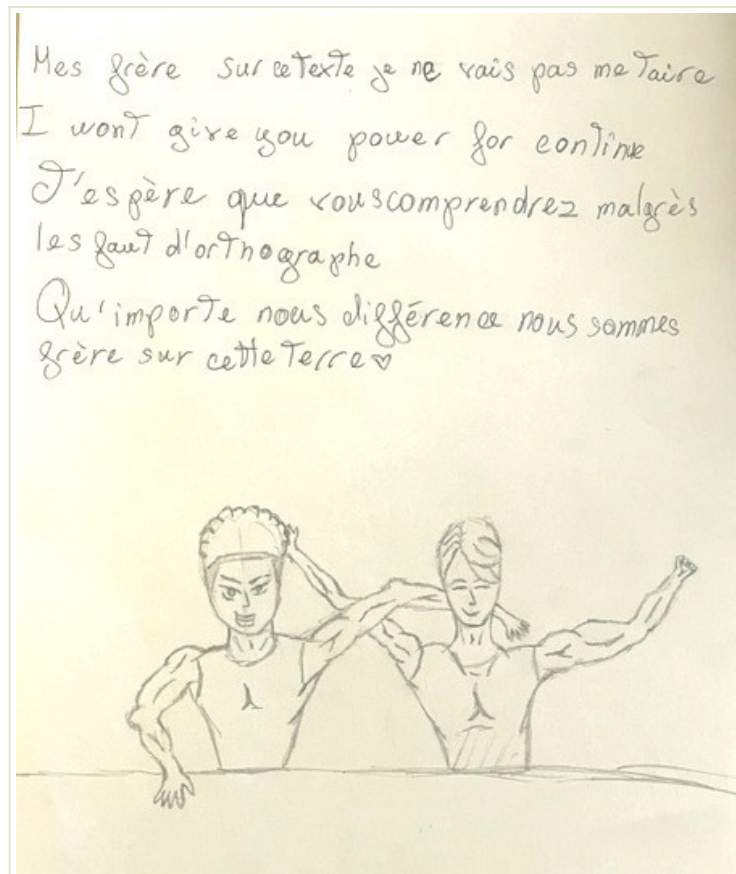 Mes frère sur ce texte je ne vais pas me taire
I wont give you power for continue
J'espère que vous comprendrez malgrès
les faut d'orthographe
Qu'importe nous différence nous sommes
frère sur cette terre♡